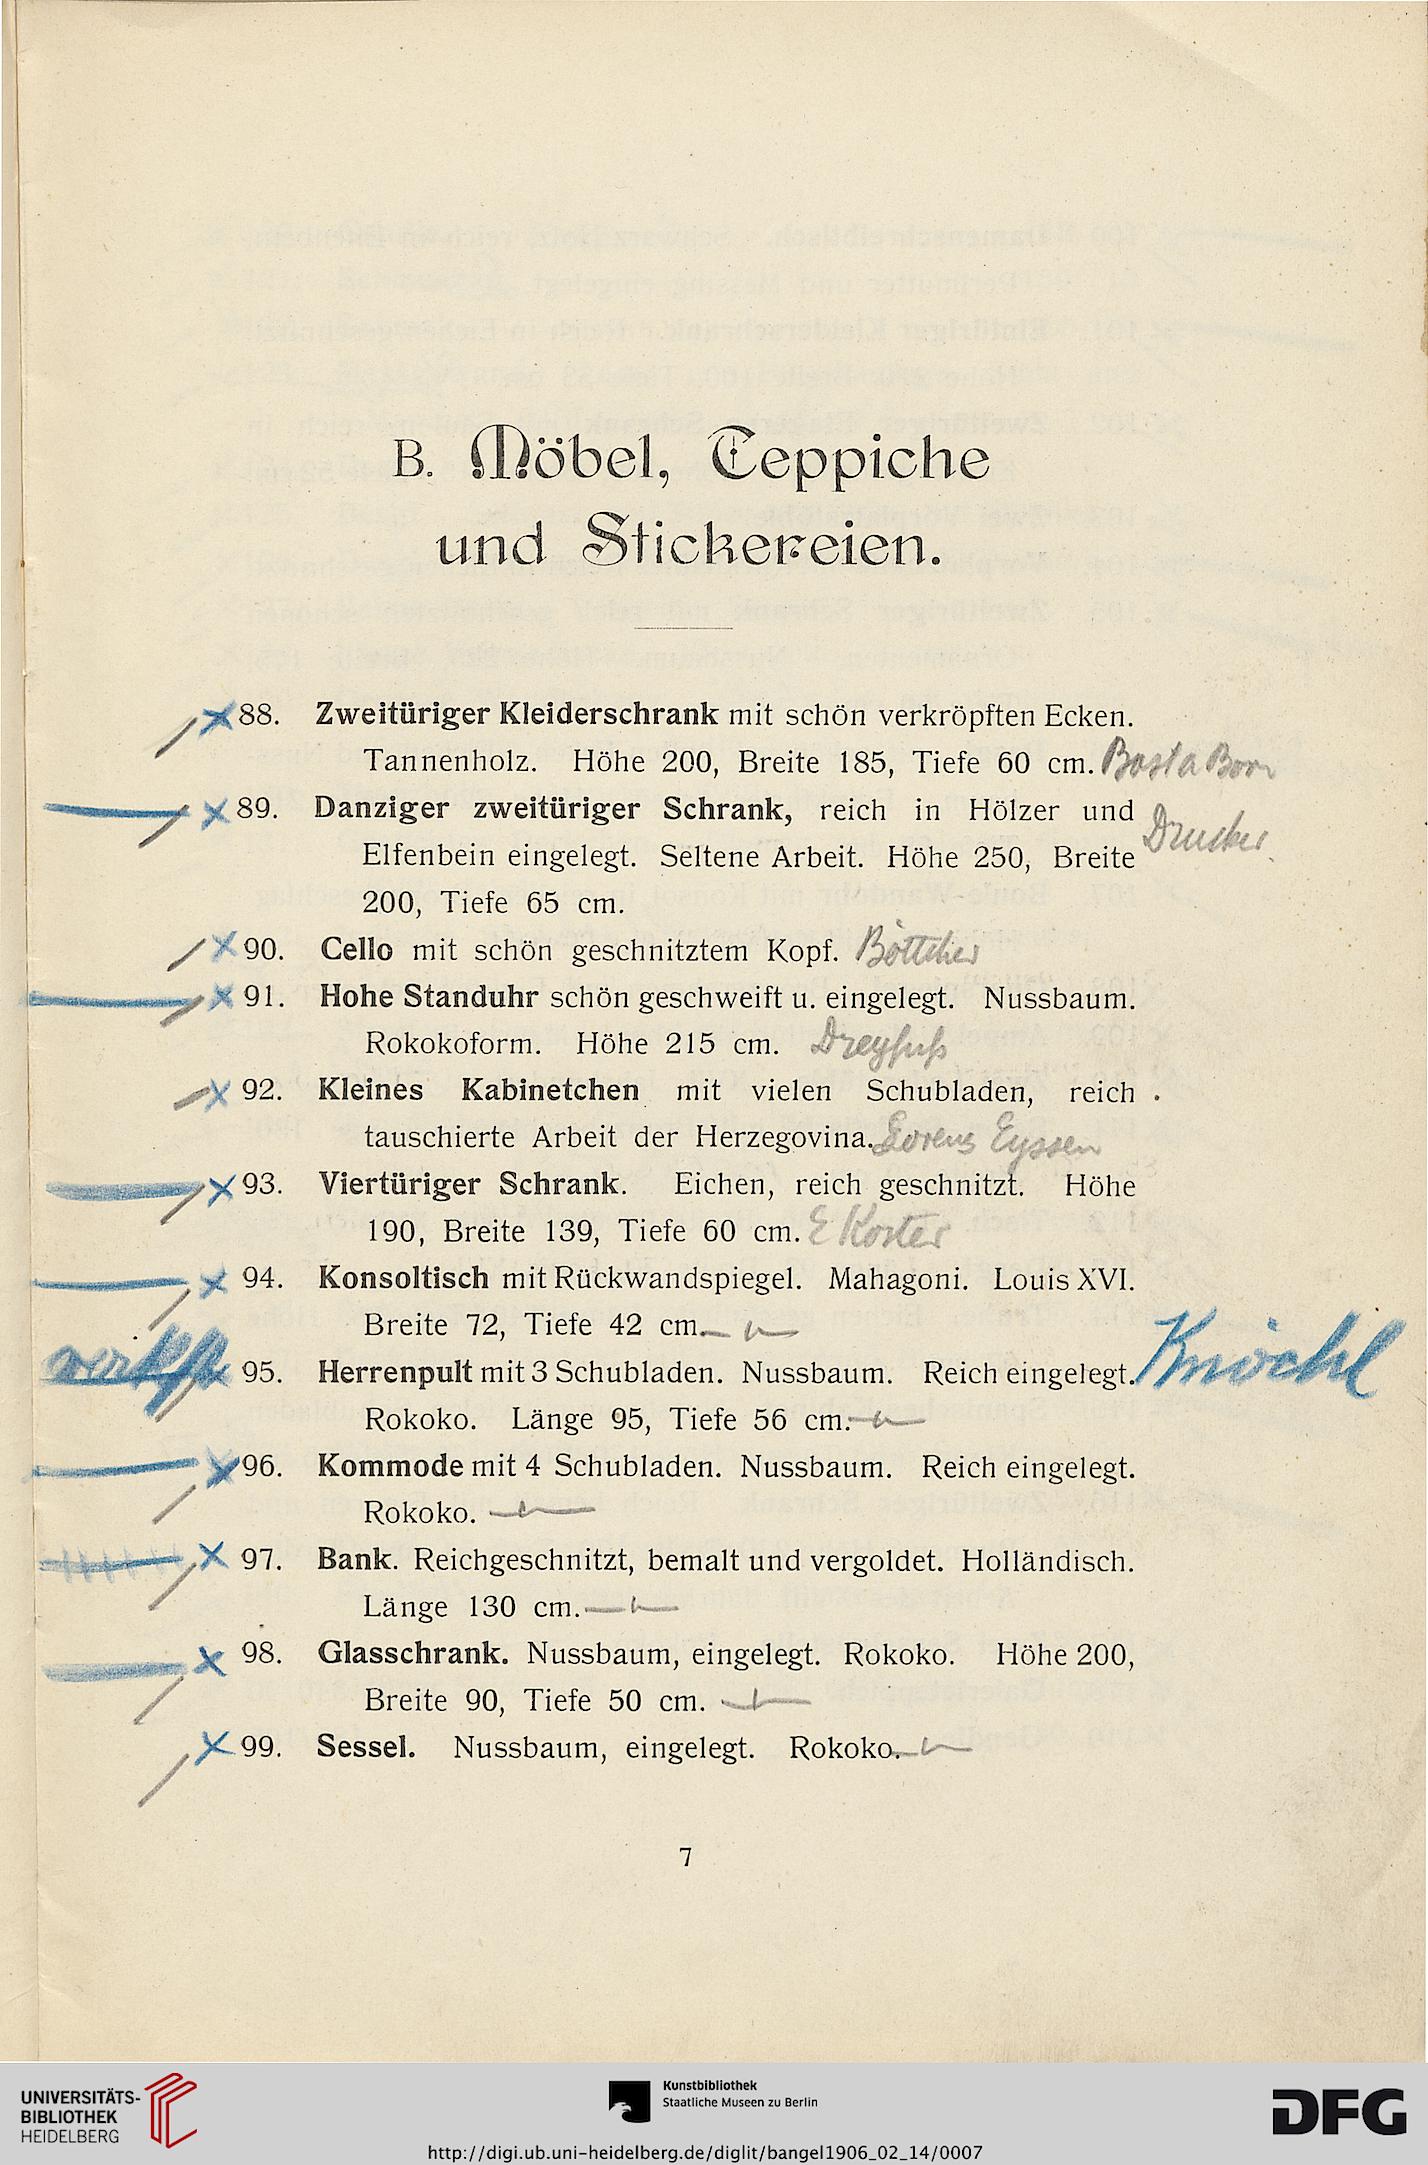 B. Möbel, Teppiche
und Stickereien.
88. Zweitüriger Kleiderschrank mit schön verkröpften Ecken.
Tannenholz. Höhe 200, Breite 185, Tiefe 60 cm.
89. Danziger zweitüriger Schrank, reich in Hölzer und
Drucker
Elfenbein eingelegt. Seltene Arbeit. Höhe 250, Breite
200, Tiefe 65 cm.
90. Cello mit schön geschnitztem Kopf. Böttcher
91. Hohe Standuhr schön geschweift u. eingelegt. Nussbaum.
Rokokoform. Höhe 215 cm. Dreyfuß
92. Kleines Kabinetchen mit vielen Schubladen, reich
tauschierte Arbeit der Herzegovina. Lorenz Eyssen
93. Viertüriger Schrank. Eichen, reich geschnitzt. Höhe
190, Breite 139, Tiefe 60 cm. E Koster
94. Konsoltisch mit Rückwandspiegel. Mahagoni. Louis XVI.
Breite 72, Tiefe 42 cm.
95. Herrenpult mit 3 Schubladen. Nussbaum. Reich eingelegt. Knöchl
Rokoko. Länge 95, Tiefe 56 cm.
96. Kommode mit 4 Schubladen. Nussbaum. Reich eingelegt.
Rokoko.
97. Bank. Reichgeschnitzt, bemalt und vergoldet. Holländisch.
Länge 130 cm.
98. Glasschrank. Nussbaum, eingelegt. Rokoko. Höhe 200,
Breite 90, Tiefe 50 cm.
99. Sessel. Nussbaum, eingelegt. Rokoko.
7
UNIVERSITÄTS-
BIBLIOTHEK
HEIDELBERG
Kunstbibliothek
Staatliche Museen zu Berlin
DFG
http://digi.ub.uni-heidelberg.de/diglit/bangel1906_02_14/0007